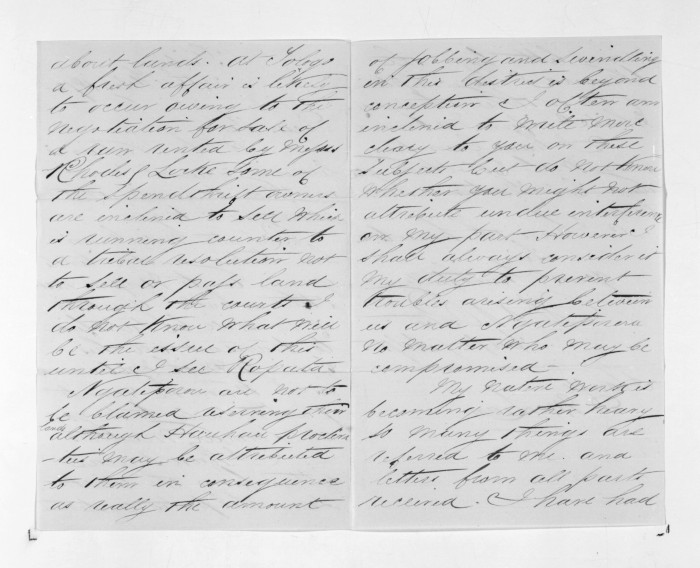 about lands. At Tologo
a fresh affair is likely
to occur owing to the
negotiation for sale of
a run rented by Messrs
Rhodes & Locke some of
the spendthrift owners
are inclined to sell which
is running counter to
a tribal resolution not
to sell or pass land
through the court. I
do not know what will
be the issue of this
until I see Ropata
Ngatiporou are not to
be blamed reserving their
lands
although Hauhau proclivi
-ties may be attributed
to them in consequence
as really the amount
of jobbing and swindling
in this district is beyond
conception & I often am
inclined to write more
clearly to you on these
subjects but do not know
whether you might not
attribute undue interference
on my part However I
shall always consider it
my duty to prevent
troubles arising between
us and Ngatiporou
no matter who may be
compromised -
My native work is
becoming rather heavy
so many things are
referred to me. and
letters from all parts
received. I have had